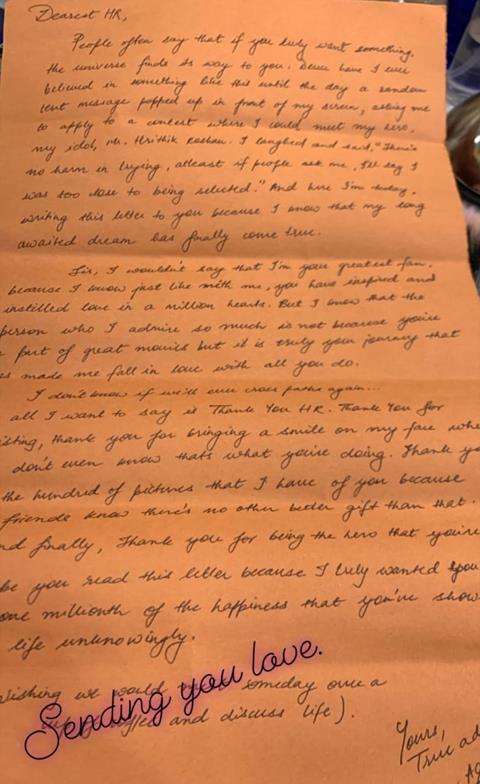 Dearest HR,
People often say that if you truly want something,
the universe finds its way to you. Never have I ever
believed in something like this until the day a random
text message popped up in front of my screen, asking me
to apply to a contest where I could meet my hero,
my idol, Mr. Hrithik Roshan. I laughed and said, "There's
no harm in trying, atleast if people ask me, I'll say I
was too close to being selected." And here I'm today,
writing this letter to you because I know that my long
awaited dream has finally come true.
Sir, I wouldn't say that I'm your greatest fan,
because I know just like with me, you have inspired and
instilled love in a million hearts. But I know that the
person who I admire so much is not because you're
part of great movies but it is truly your journey that
made me fall in love with all you do.
I don't know if we'll ever cross paths again...
all I want to say is Thank You HR. Thank You for
isting, thank you for bringing a smile on my face whe
don't even know thats what you're doing. Thank yo
the hundred of pictures that I have of you because
friends know there's no other better gift than that.
nd finally, Thank you for being the hero that you're
be you read this letter because I truly wanted you
one millionth of the happiness that you've show
life unknowingly.
Wishing we would someday over a
and discuss life).
Sending you love.
Yours,
True ad